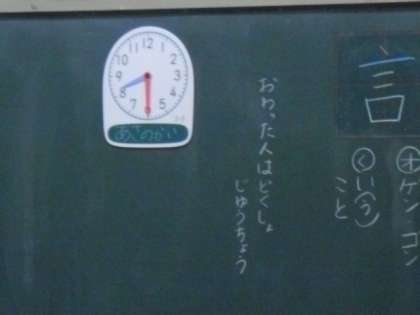 言
オ ゲン コン
く い(う)
こと
おわった人はどくしょ
じゆうちょう
12
1
2
3
4
5
6
7
8
9
10
11
あさのかい